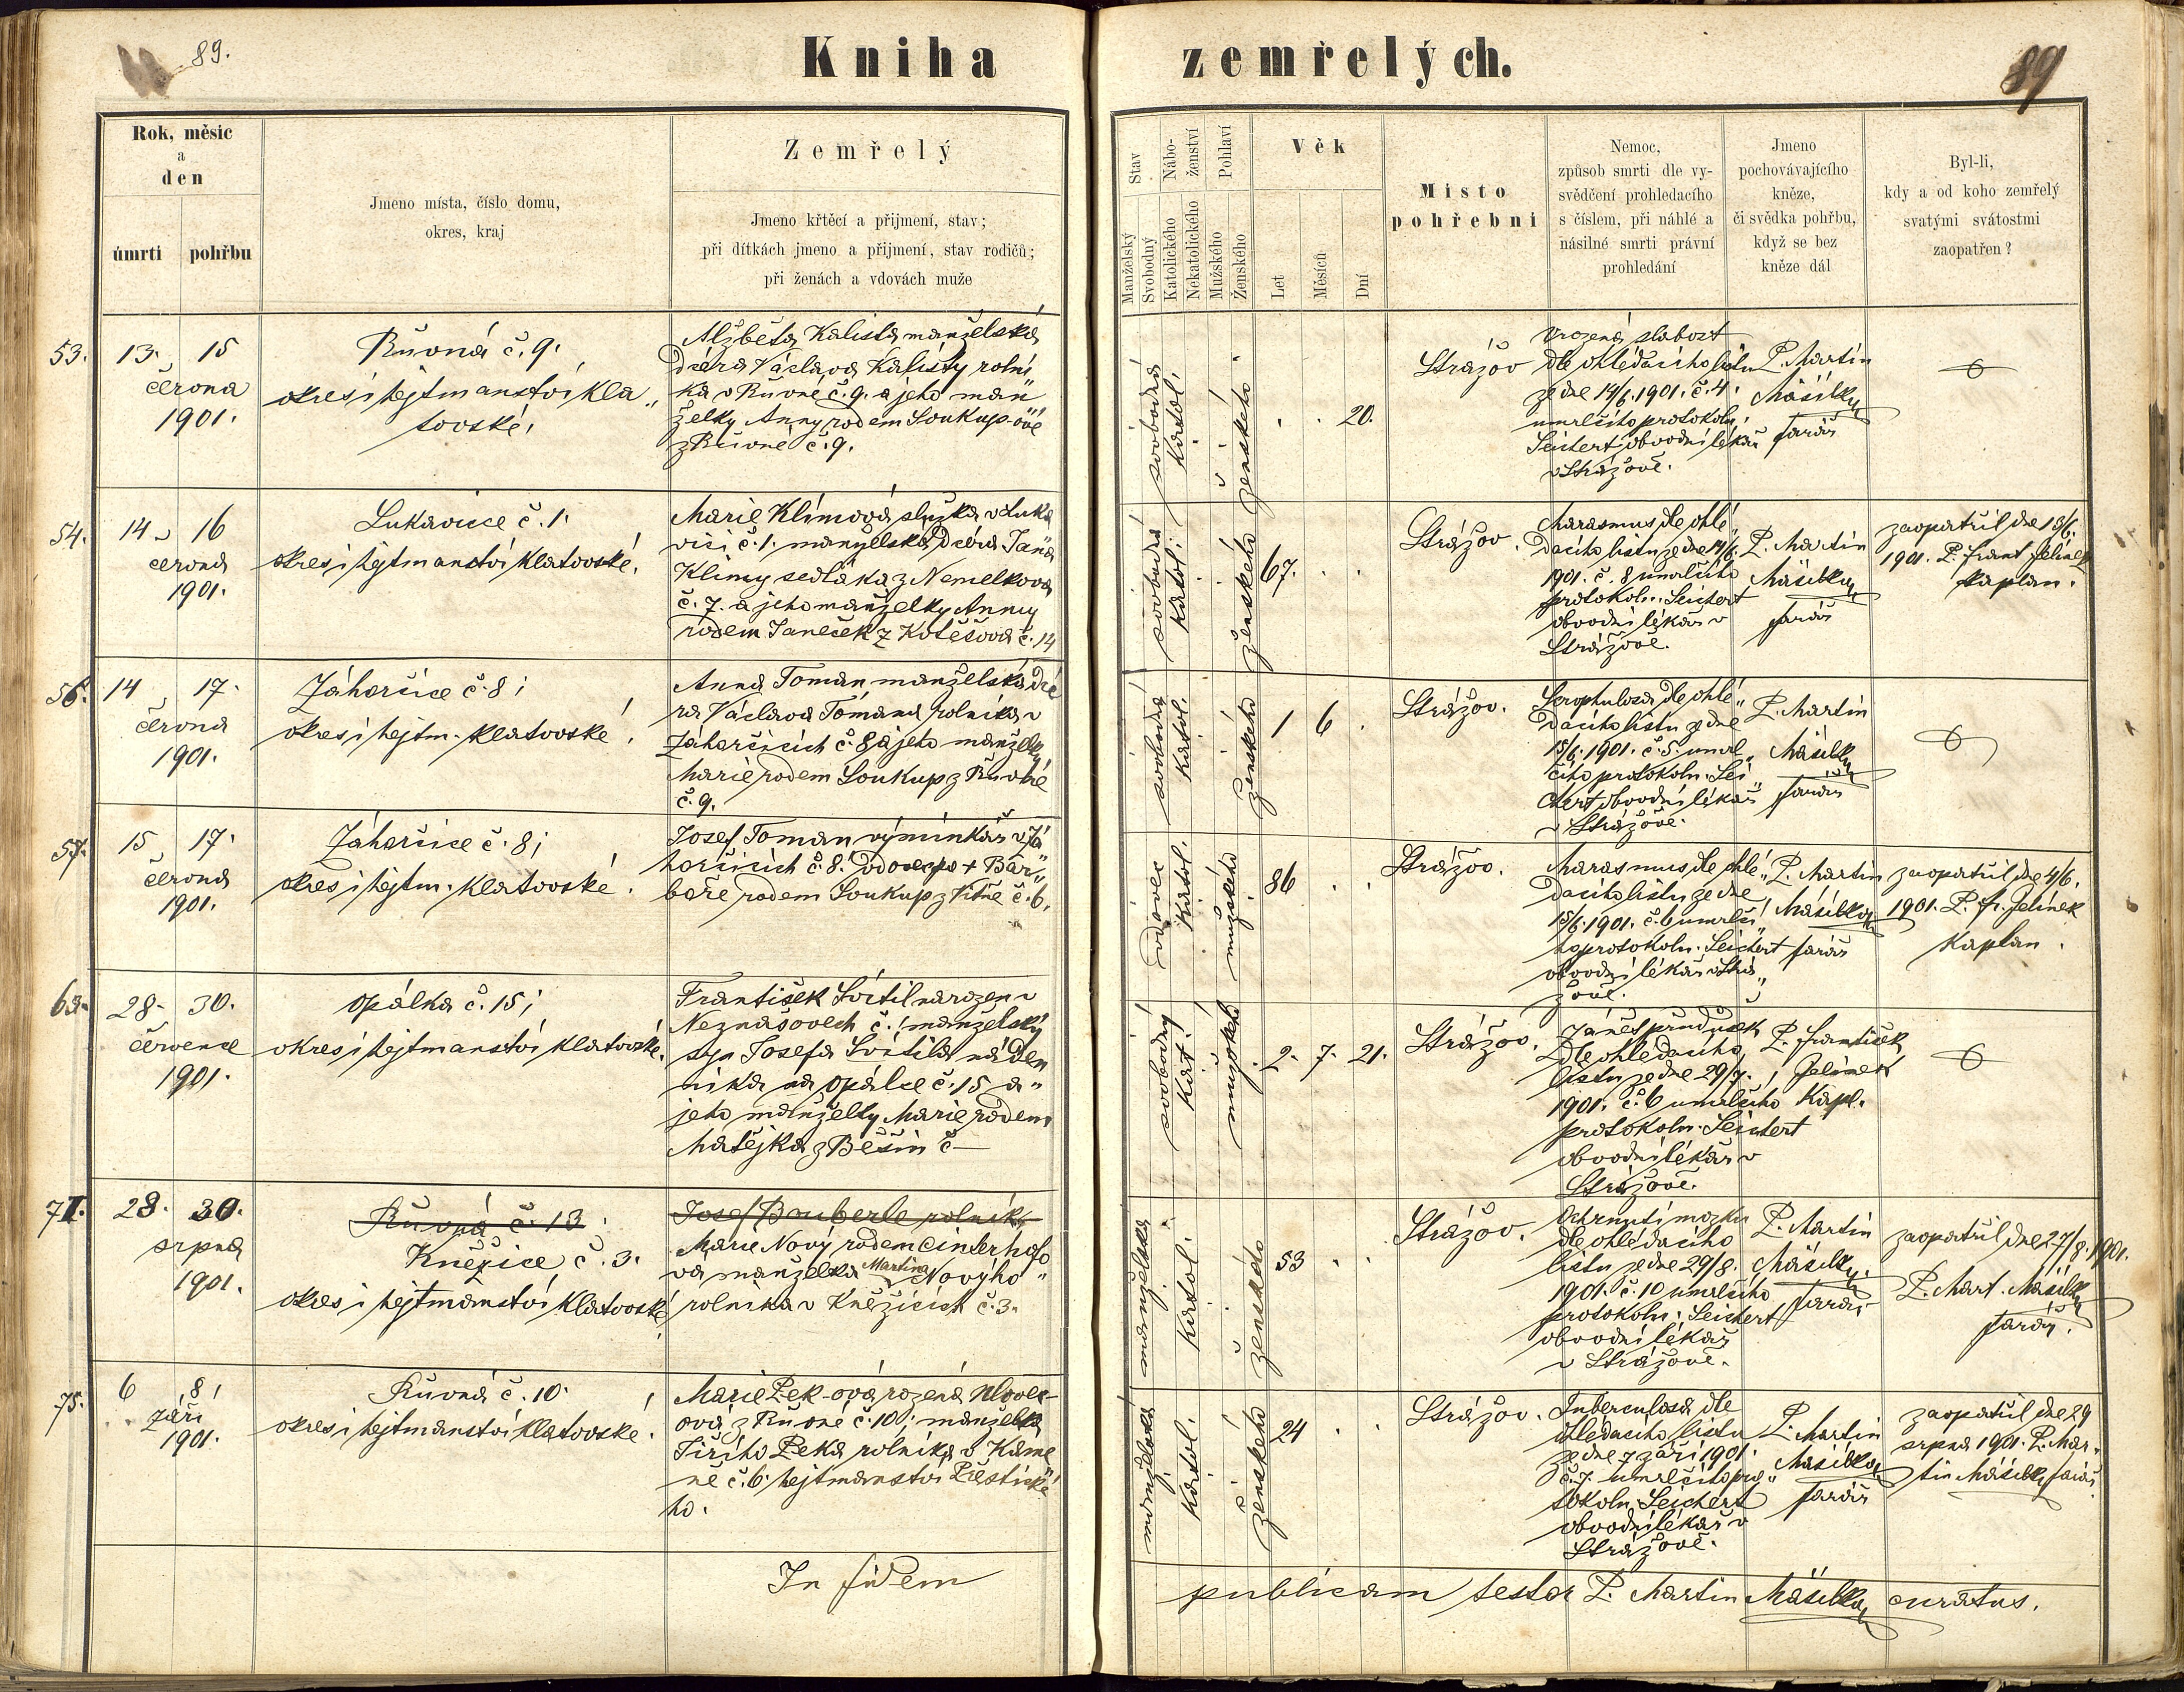 89.
Kniha zemřelých.
89
Rok, měsíc
a
den
úmrtí pohřbu
Jmeno místa, číslo domu,
okres, kraj
Zemřelý
Jmeno křtěcí a přijmení, stav;
při dítkách jmeno a přijmení, stav rodičů;
při ženách a vdovách muže
Stav
Manželský
Svobodný
Nábo-
ženství
Katolického
Nekatolického
Pohlaví
Mužského
Ženského
Věk
Let
Měsíců
Dní
Místo
pohřební
Nemoc,
způsob smrti dle vy-
svědčení prohledacího
s číslem, při náhlé a
násilné smrti právní
prohledání
Jmeno
pochovávajícího
kněze,
či svědka pohřbu,
když se bez
kněze dál
Byl-li,
kdy a od koho zemřelý
svatými svátostmi
zaopatřen?
53.
13. 15
června
1901.
Růvná č. 9.
okres i hejtmanství kla„
tovské,
Alžběta Kalista manželská
dcéra Václava Kalisty rolní
ka v Růvné č. 9. a jeho man„
želky Anny rodem Soukup-ové
z Růvné č. 9.
svobodná
katol.
ženského
20.
Strážov
Vrozená slabost
dle ohledacího listu
ze dne 14/6. 1901. č. 4.
umrlčího protokolu,
Seichert obvodní lékař
v Strážově.
P. Martin
Mäsilko
farář
54.
14 16
června
1901.
Lukavice č. 1.
okres i hejtmanství klatovské,
Marie Klímová služka v Luka
vici č. 1. manželská dcéra Jana
Klimy sedláka z Nemelkova
č. 7. a jeho manželky Anny
rodem Janeček z Kotěšova č. 14
svobodná
katol.
ženského
67.
Strážov.
Marasmus dle ohlé„
dacího listu ze dne 14/6.
1901. č. 8 umrlčího
protokolu. Seichert
obvodní lékař v
Strážově.
P. Martin
Mäsilko
farář
zaopatřil dne 13/6.
1901. P. Frant Jelínek
kaplan.
56.
14 17.
června
1901.
Záhorčice č. 8;
okres i hejtm. klatovské.
Anna Toman manželská dcé
ra Václava Tomana rolníka v
Záhorčicích č. 8 a jeho manželky
Marie rodem Soukup z Růvné
č. 9.
svobodná
katol.
ženského
1 6
Strážov.
Scrophulosa dle ohlé„
dacího listu ze dne
15/6. 1901. č. 5. umrl„
čího protokolu. Sei„
chert obvodní lékař
v Strážově.
P. Martin
Mäsilko
farář
57.
15 17.
června
1901.
Záhorčice č. 8;
okres i hejtm. klatovské.
Josef Toman výminkář v Zá
horčicích č. 8. vdovec po + Bar„
boře rodem Soukup z Vítně č. 6.
vdovec
katol.
mužského
86
Strážov.
Marasmus dle ohlé„
dacího listu ze dne
15/6. 1901. č. 6 umrlčí„
ho protokolu. Seichert
obvodní lékař v Strá„
žově.
P. Martin
Mäsilko
farář
zaopatřil dne 4/6.
1901. P. Fr. Jelínek
kaplan.
28. 30.
července
1901.
Opálka č. 15;
okres i hejtmanství klatovské.
František Svítil narozen v
Neznašovech č. manželský
syn Josefa Svítila náden
níka na Opálce č. 15 a„
jeho manželky Marie rodem
Matějka z Běšin č —
svobodný
kat.
mužského
2. 7. 21.
Strážov.
Zánět průdušek
dle ohledacího
listu ze dne 29/7.
1901. č. 6 umrlčího
protokolu. Seichert
obvodní lékař v
Strážově.
P. František
Jelínek
Kapl.
28. 30.
srpna
1901.
Růvná č. 13
Kněžice č. 3.
okres i hejtmanství klatovské
Josef Bauberle rolník
Marie Nový rodem Cinterhofo
va manželka Martina Novýho„
rolníka v Kněžicích č. 3.
manželská
katol.
ženského
53
Strážov.
Ochrnutí mozku
dle ohledacího
listu ze dne 29/8.
1901. č. 10 umrlčího
protokolu; Seichert
obvodní lékař
v Strážově.
P. Martin
Mäsilko
farář
zaopatřil dne 27/8. 1901.
P. Mart. Mäsilko
farář.
75.
6 8,
září
1901.
Růvná č. 10.
okres i hejtmanství klatovské.
Marie Pek-ová rozená
ová z Růvné č. 10; manželka
Jiřího Peka rolníka v Kame
ně č. 6. hejtmanství Přestické
ho.
manželská
katol.
ženského
24
Strážov.
Tuberculosa dle
ohledacího listu
ze dne 7 září 1901.
č. 7. umrlčího pro„
tokolu. Seichert
obvodní lékař v
Strážově.
P. Martin
Mäsilko
farář
zaopatřil dne 29
srpna 1901. P. Mar„
tin Mäsilko farář
In fidem publicam testor P. Martin Mäsilko curatus.